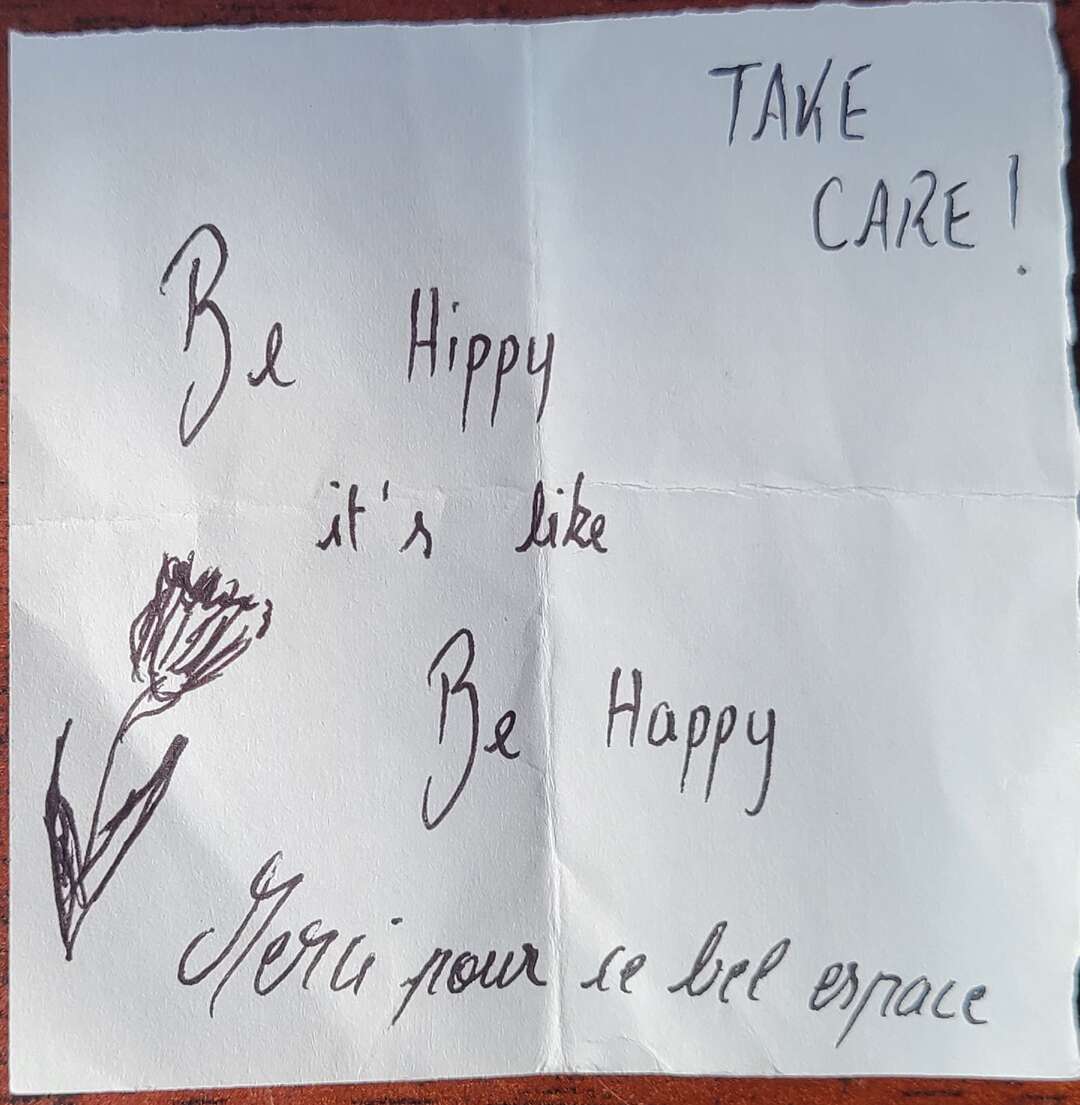 TAKE
CARE!
Be Hippy
it's like
Be Happy
Merci pour ce bel espace